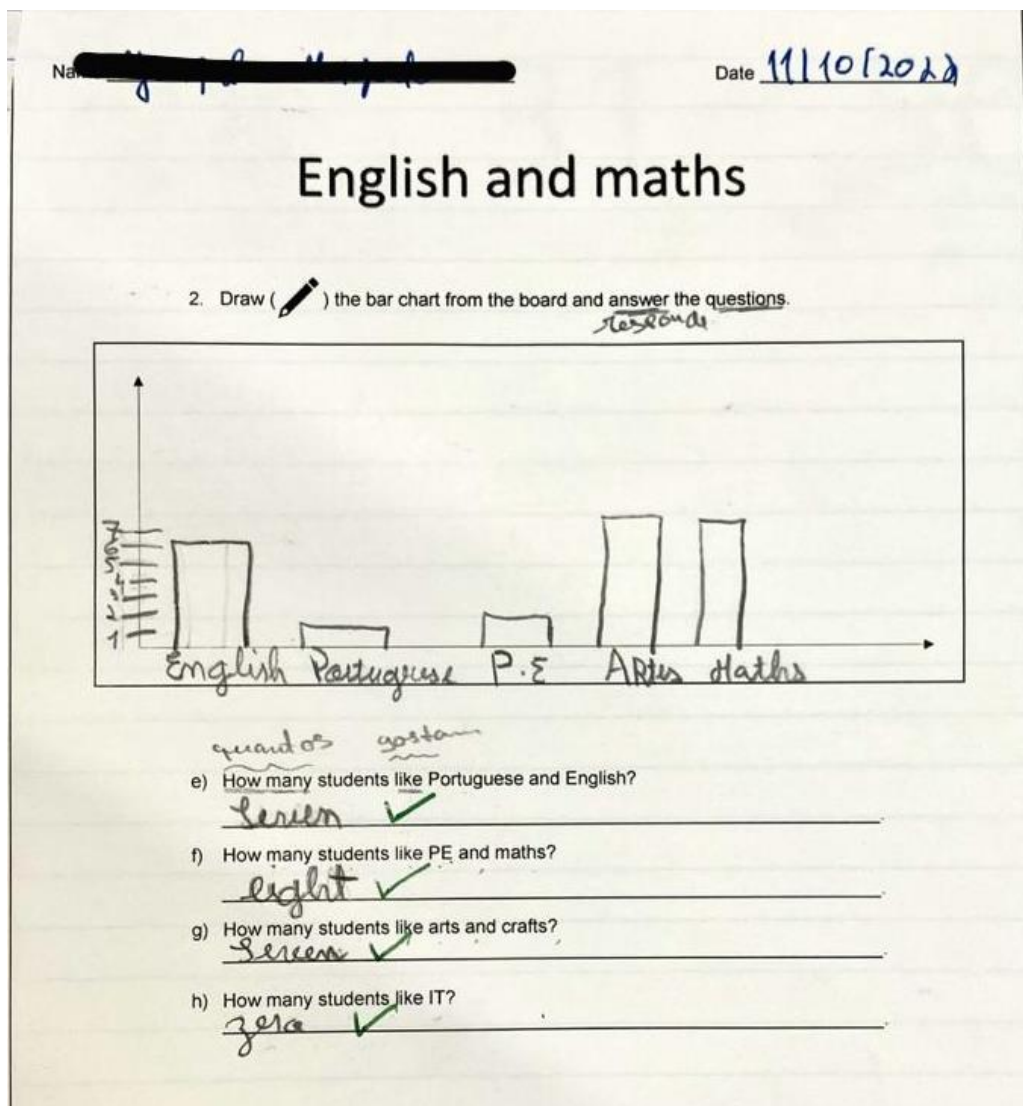 Date 11/10/2022
English and maths
2. Draw ( ) the bar chart from the board and answer the questions.
responde
7
6
5
4
3
2
1
English Portuguese P.E Artes Maths
quantos gostam
e) How many students like Portuguese and English?
Seven
f) How many students like PE and maths?
eight
g) How many students like arts and crafts?
Seven
h) How many students like IT?
zero